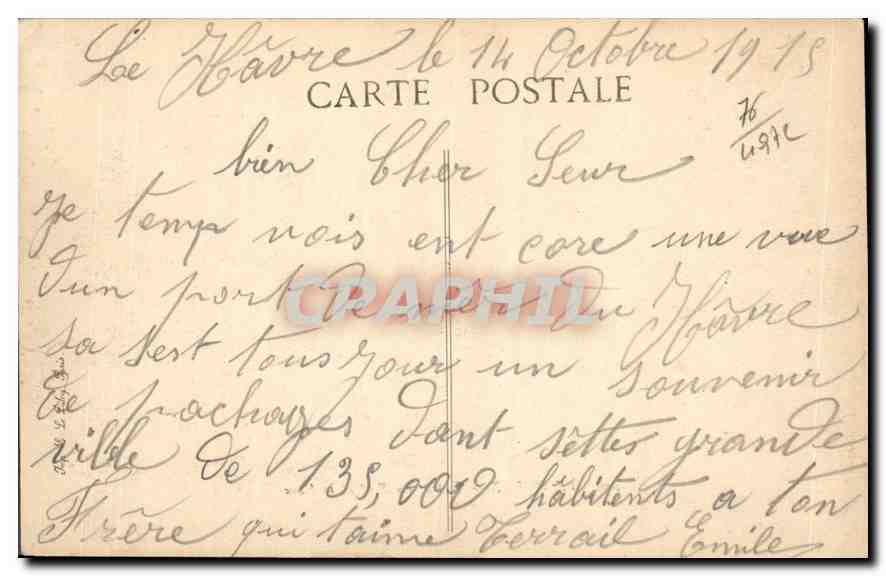 Le Hâvre le 14 Octobre 1915
CARTE POSTALE
76
bien Cher Seur
je temp vois ent core une vue
d'un port de mer du Hâvre
sa sert tous jour un souvenir
de pachages dant settes grande
ville de 135,000 hâbitents a ton
Frêre qui taime Terrail Emile
CRAPHIL